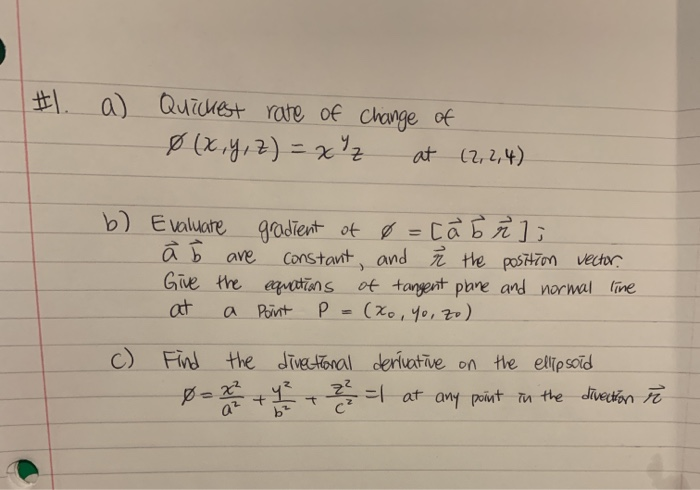 #1. a) Quickest rate of change of
∅(x,y,z) = x^y z at (2,2,4)
b) Evaluate gradient of ∅ = [a⃗ b⃗ r⃗];
a⃗ b⃗ are constant, and r⃗ the position vector.
Give the equations of tangent plane and normal line
at a Point P = (x₀, y₀, z₀)
c) Find the directional derivative on the ellipsoid
∅ = x²/a² + y²/b² + z²/c² = 1 at any point in the direction r⃗